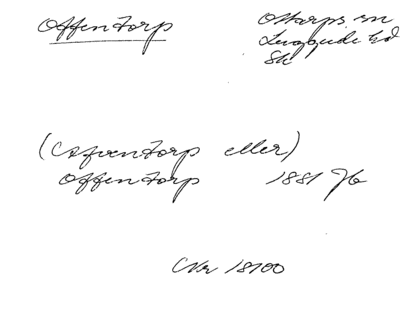 Offentorp
Ottarps sn
Luggude hd
Sk
(Ofventorp eller)
Offentorp 1881 Jb
CNr 18100